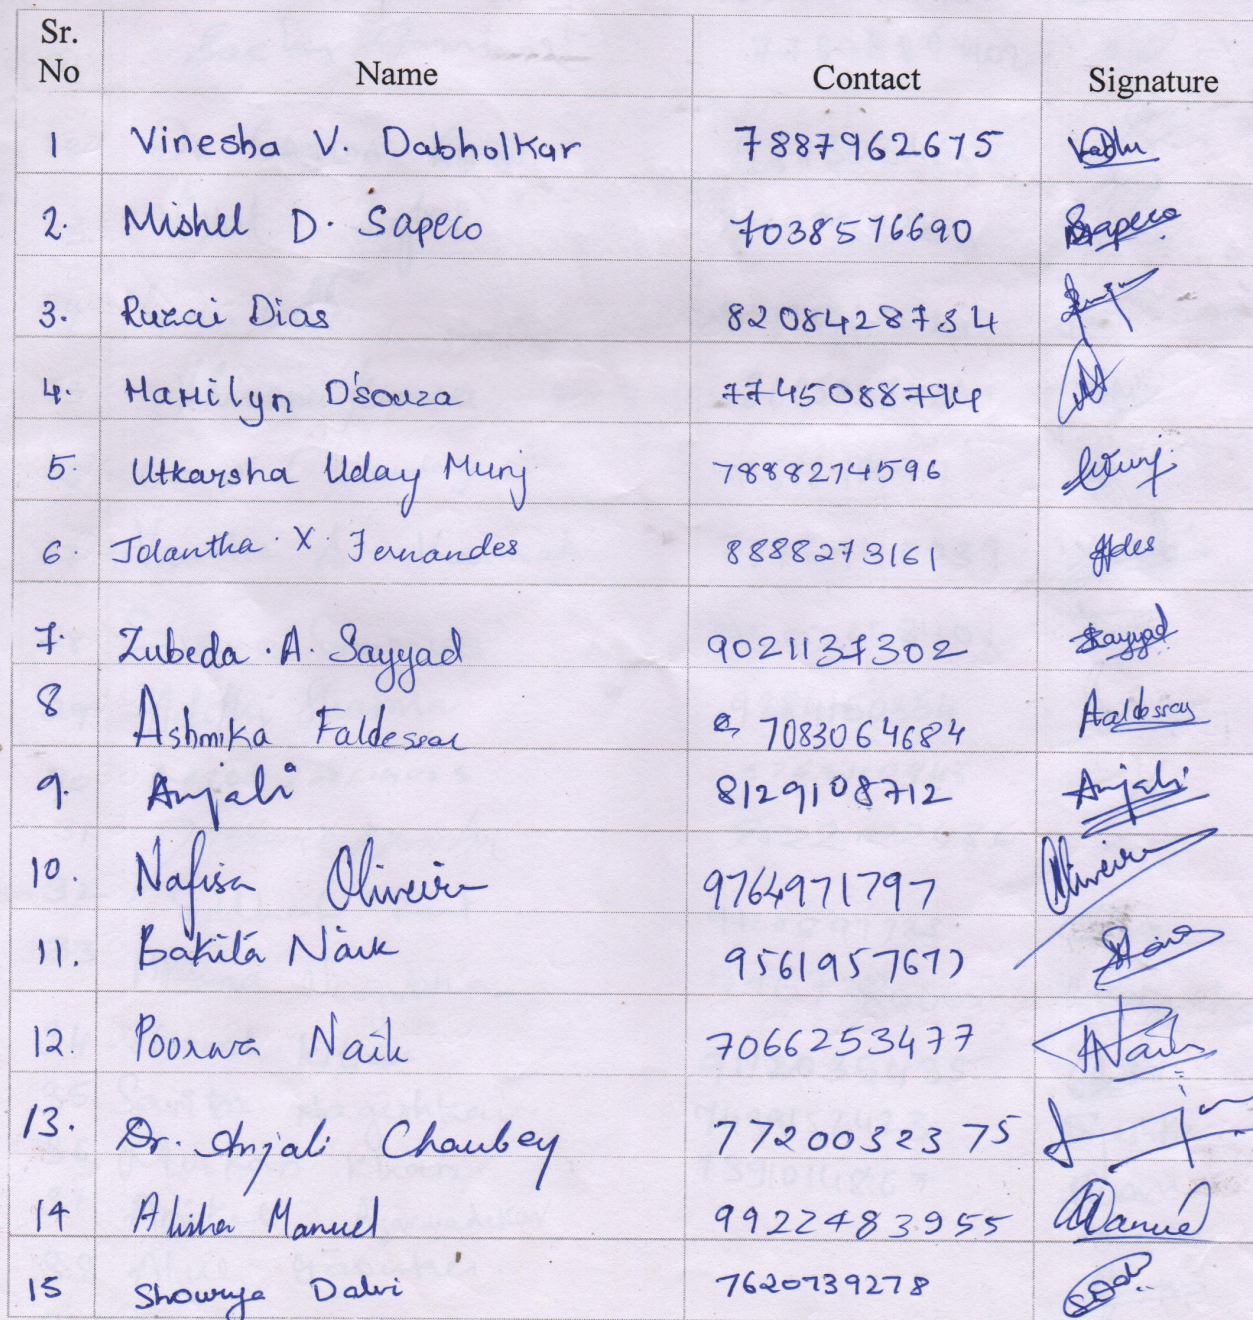 Sr. No Name Contact Signature
1 Vinesha V. Dabholkar 7887962675
2. Mishel D. Sapeco 7038576690 Sapeco
3. Ruzai Dias 8208428734
4. Marilyn D'souza 7745088794
5. Utkarsha Uday Munj 7888274596
6. Jolantha X Fernandes 8888273161
7. Zubeda A. Sayyad 9021137302 Sayyad
8 Ashmika Faldessai 7083064684
9. Anjali 8129108712 Anjali
10. Nafisa Oliveira 9764971797 Oliveira
11. Bakita Naik
12. Poorva Naik 7066253477 Naik
13. Dr. Anjali Chaubey 7720032375
14 Alisha Manuel 9922483955 Manuel
15 Showrya Dalvi 7620739278